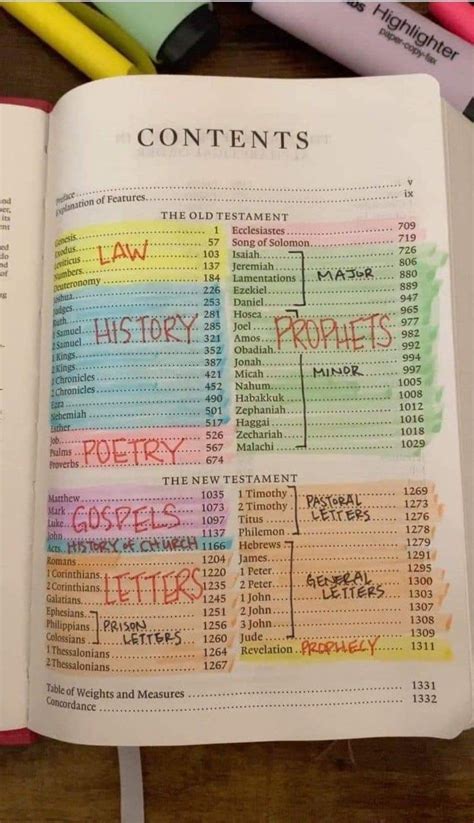 Highlighter
paper-copy-fax
CONTENTS
Preface v
Explanation of Features ix
THE OLD TESTAMENT
Genesis 1
Exodus 57
Leviticus 103
Numbers 137
Deuteronomy 184
LAW
Joshua 226
Judges 253
Ruth 281
1 Samuel 285
2 Samuel 321
1 Kings 352
2 Kings 387
1 Chronicles 421
2 Chronicles 452
Ezra 490
Nehemiah 501
Esther 517
HISTORY
Job 526
Psalms 567
Proverbs 674
POETRY
Ecclesiastes 709
Song of Solomon 719
Isaiah 726
Jeremiah 806
Lamentations 880
Ezekiel 889
Daniel 947
MAJOR
Hosea 965
Joel 977
Amos 982
Obadiah 992
Jonah 994
Micah 997
Nahum 1005
Habakkuk 1008
Zephaniah 1012
Haggai 1016
Zechariah 1018
Malachi 1029
PROPHETS
MINOR
THE NEW TESTAMENT
Matthew 1035
Mark 1073
Luke 1097
John 1137
GOSPELS
Acts HISTORY OF CHURCH 1166
Romans 1204
1 Corinthians 1220
2 Corinthians 1235
Galatians 1245
LETTERS
Ephesians 1251
Philippians 1256
Colossians 1260
PRISON
LETTERS
1 Thessalonians 1264
2 Thessalonians 1267
1 Timothy 1269
2 Timothy 1273
Titus 1276
Philemon 1278
PASTORAL
LETTERS
Hebrews 1279
James 1291
1 Peter 1295
2 Peter 1300
1 John 1303
2 John 1307
3 John 1308
Jude 1309
GENERAL
LETTERS
Revelation PROPHECY 1311
Table of Weights and Measures 1331
Concordance 1332